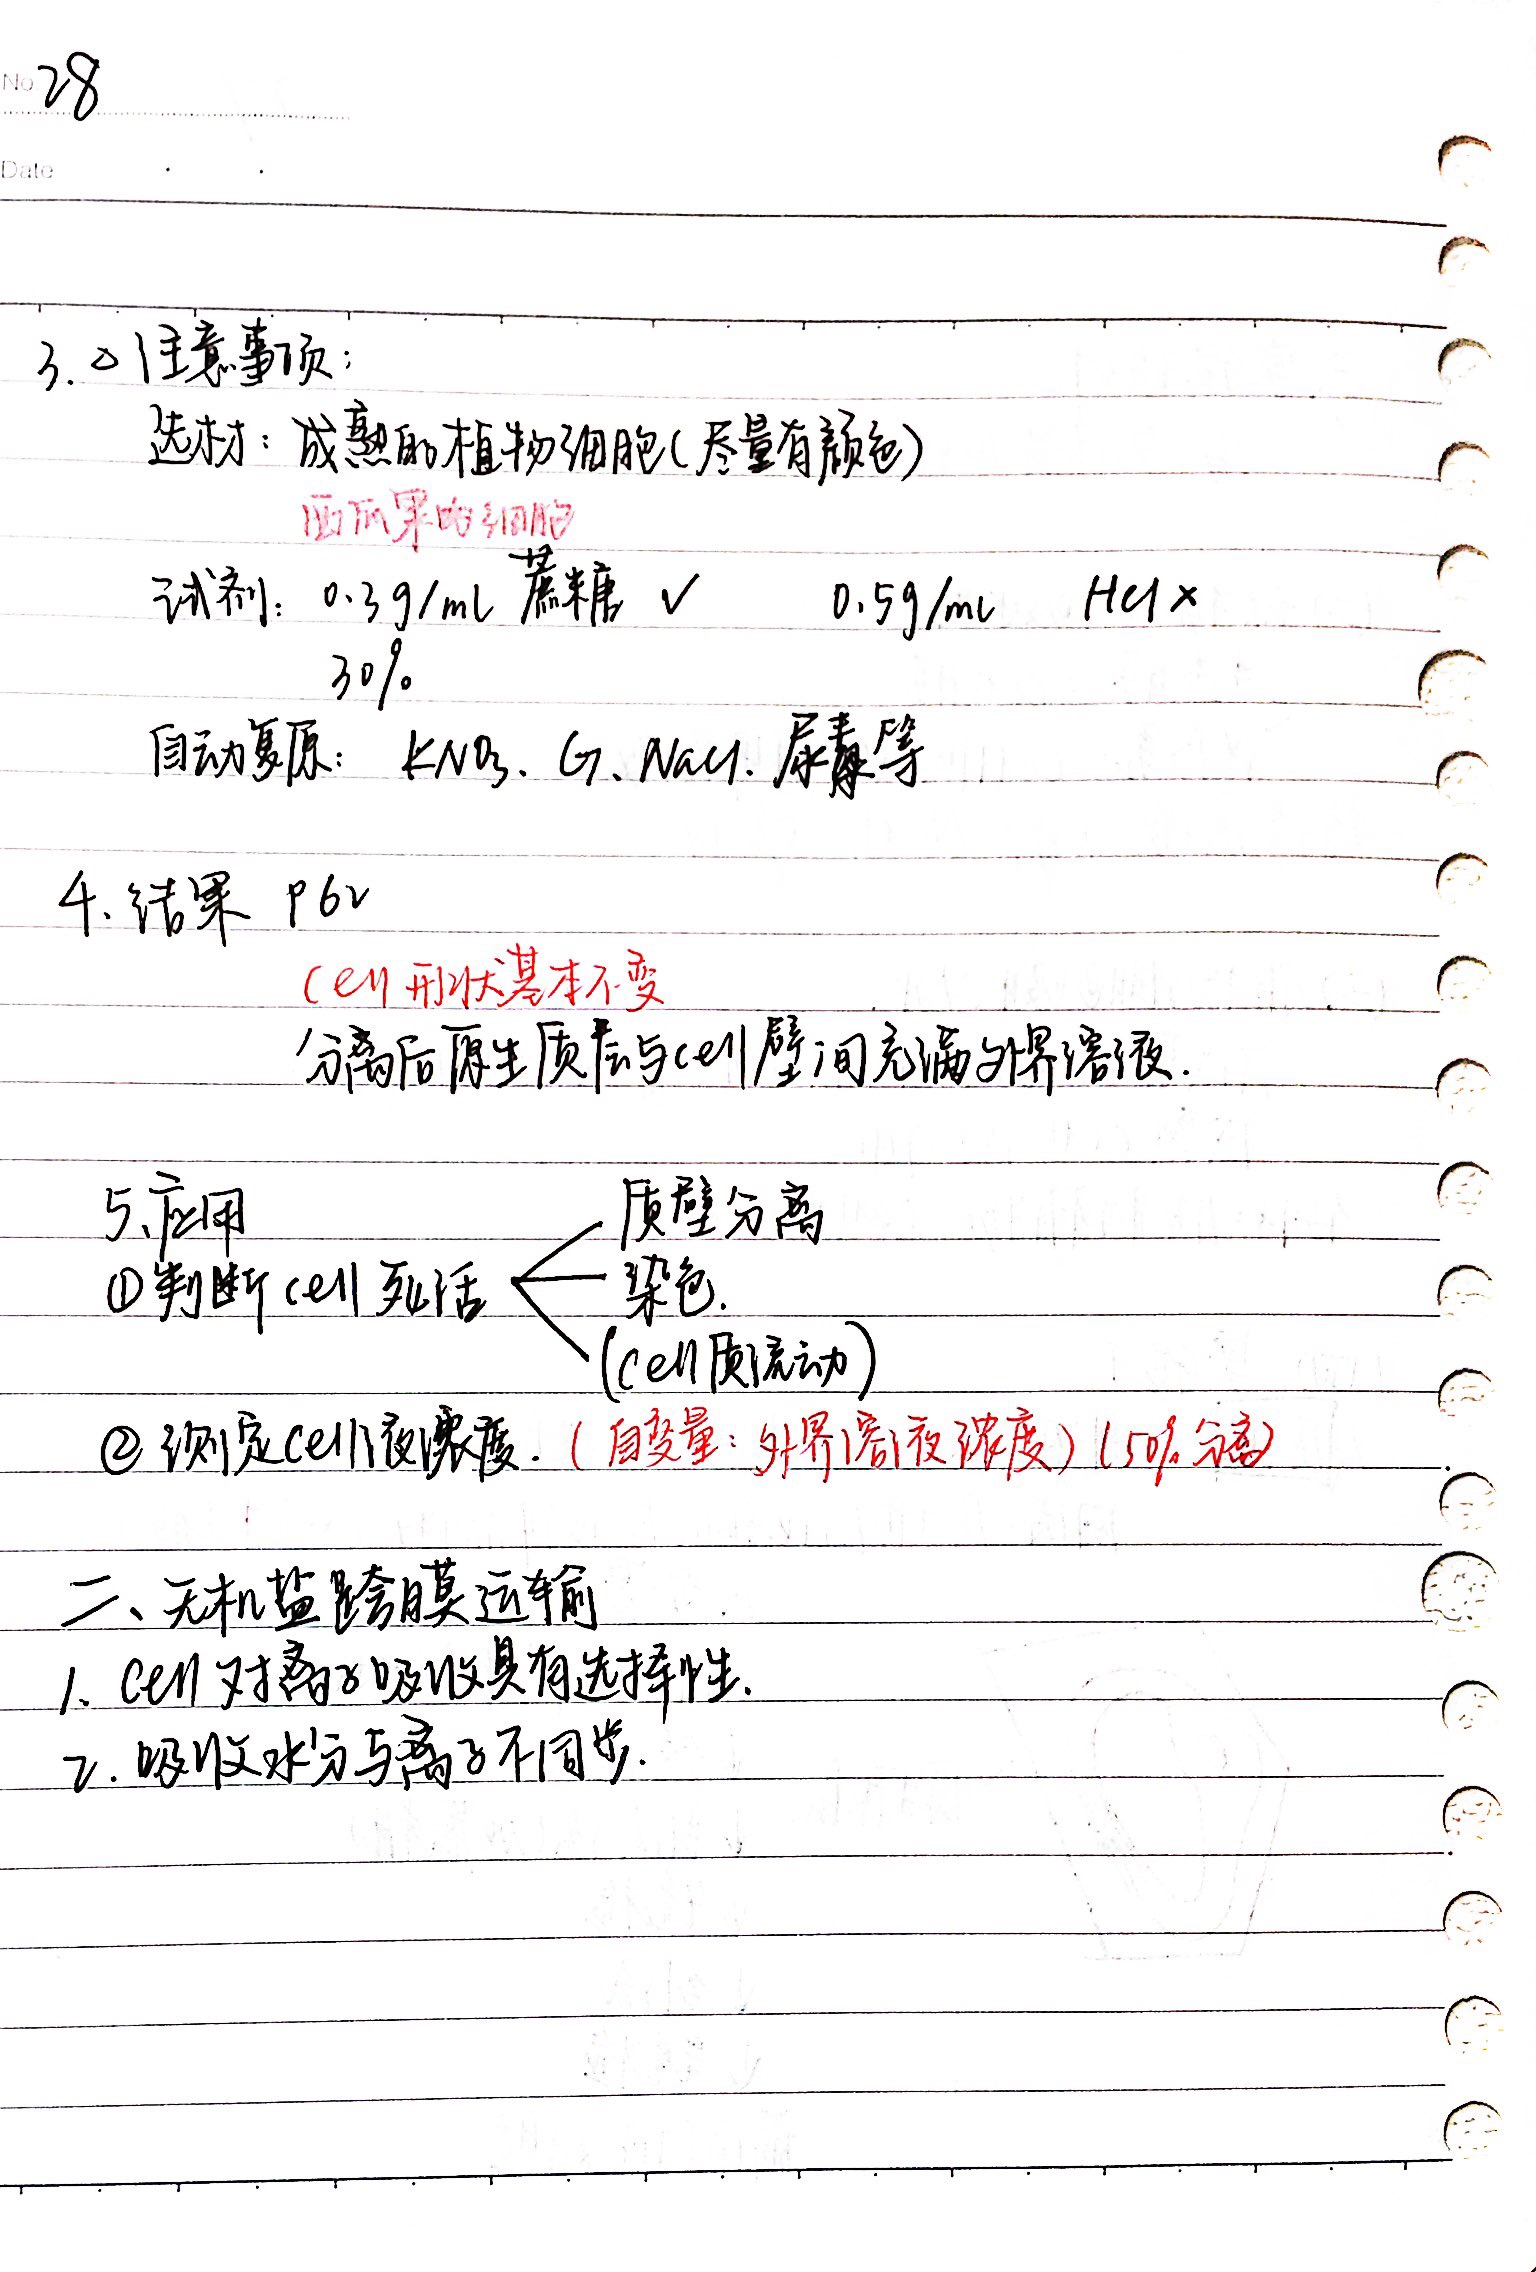 No 28
Date
3.△注意事项:
选材: 成熟的植物细胞(尽量有颜色)
西瓜果肉细胞
试剂: 0.3g/mL 蔗糖 ✓ 0.5g/mL HCl ×
30%
自动复原: KNO₃、G、NaCl、尿素等
4、结果 P62
cell 形状基本不变
分离后原生质层与cell壁间充满外界溶液.
5、应用
质壁分离
①判断cell死活
染色.
(cell质流动)
②测定cell液浓度. (自变量: 外界溶液浓度) (50%分离)
二、无机盐跨膜运输
1、cell对离子吸收具有选择性.
2.吸收水分与离子不同步.